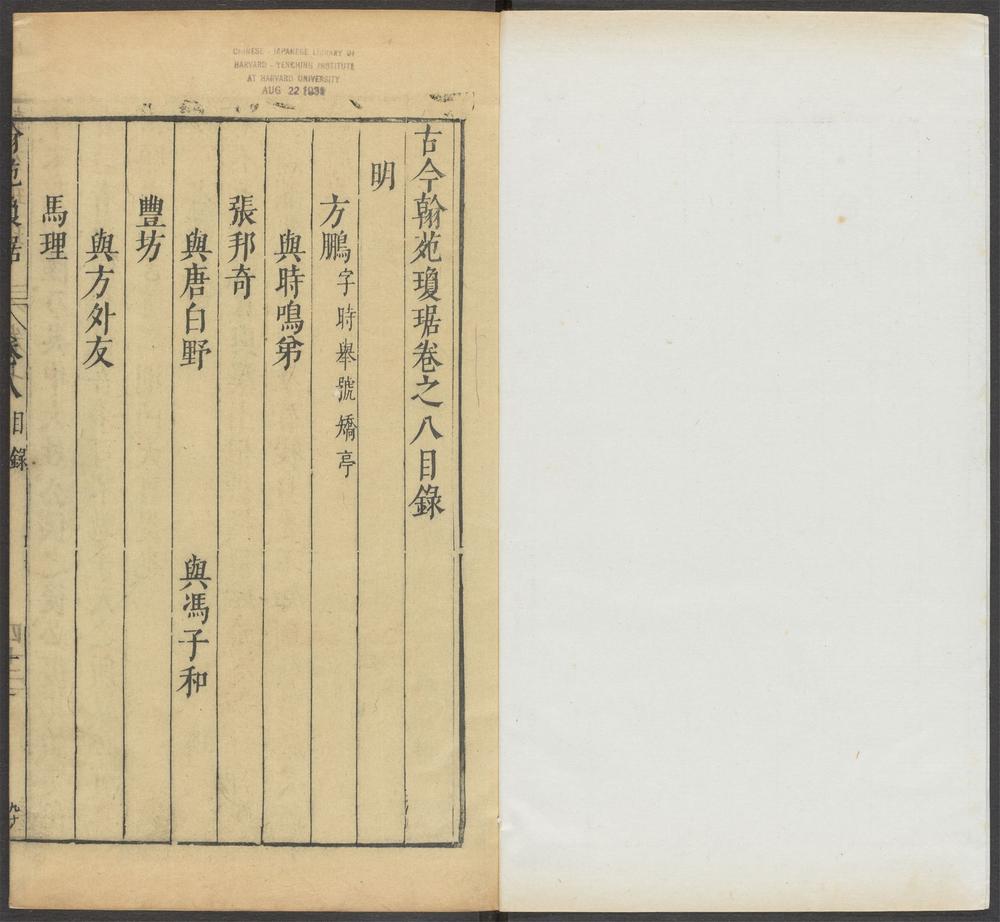 CHINESE - JAPANESE LIBRARY OF
HARVARD - YENCHING INSTITUTE
AT HARVARD UNIVERSITY
AUG 22 1931
古今翰苑瓊琚卷之八目錄
明
方鵬字時舉號矯亭
與時鳴弟
張邦奇
與唐白野 與馮子和
豐坊
與方外友
馬理
翰苑瓊琚 卷八目錄